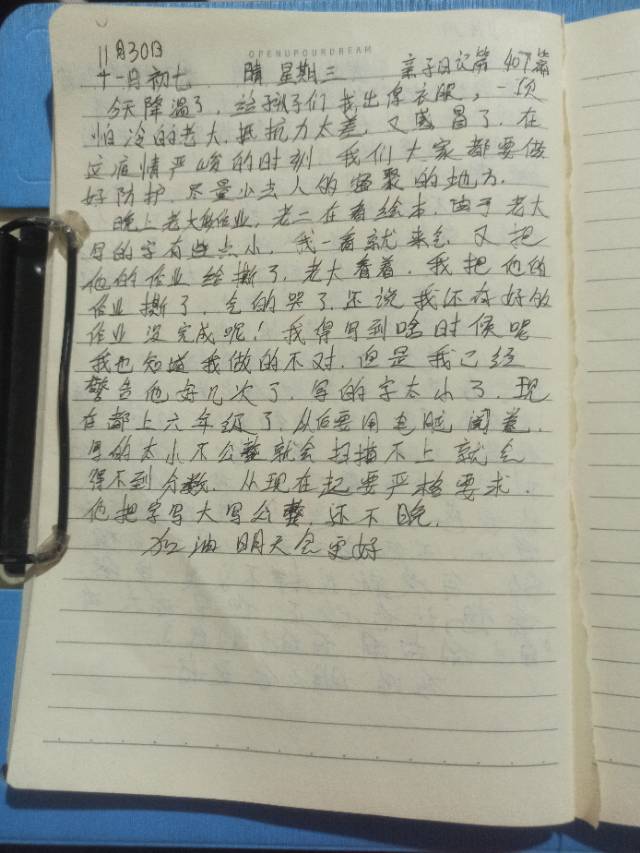 OPENUPOURDREAM
11月30日
十一月初七 晴 星期三 亲子日记第407篇
今天降温了,给孩子们找出保衣服,一贯
怕冷的老大,抵抗力太差,又感冒了,在
这疫情严峻的时刻 我们大家都要做
好防护,尽量少去人的密聚的地方,
晚上老大做作业,老二在看绘本,由于老大
写的字有些点小,我一看就来气 又把
他的作业给撕了,老大看着,我把他的
作业撕了,气的哭了,还说我还有好的
作业没完成呢!我得写到啥时候呢
我也知道我做的不对,但是我已经
警告他好几次了,写的字太小了,现
在都上六年级了,以后要用电脑阅卷,
写的太小不公整就会扫描不上就会
得不到分数,从现在起要严格要求,
他把字写大写公整,还不晚,
加油 明天会更好